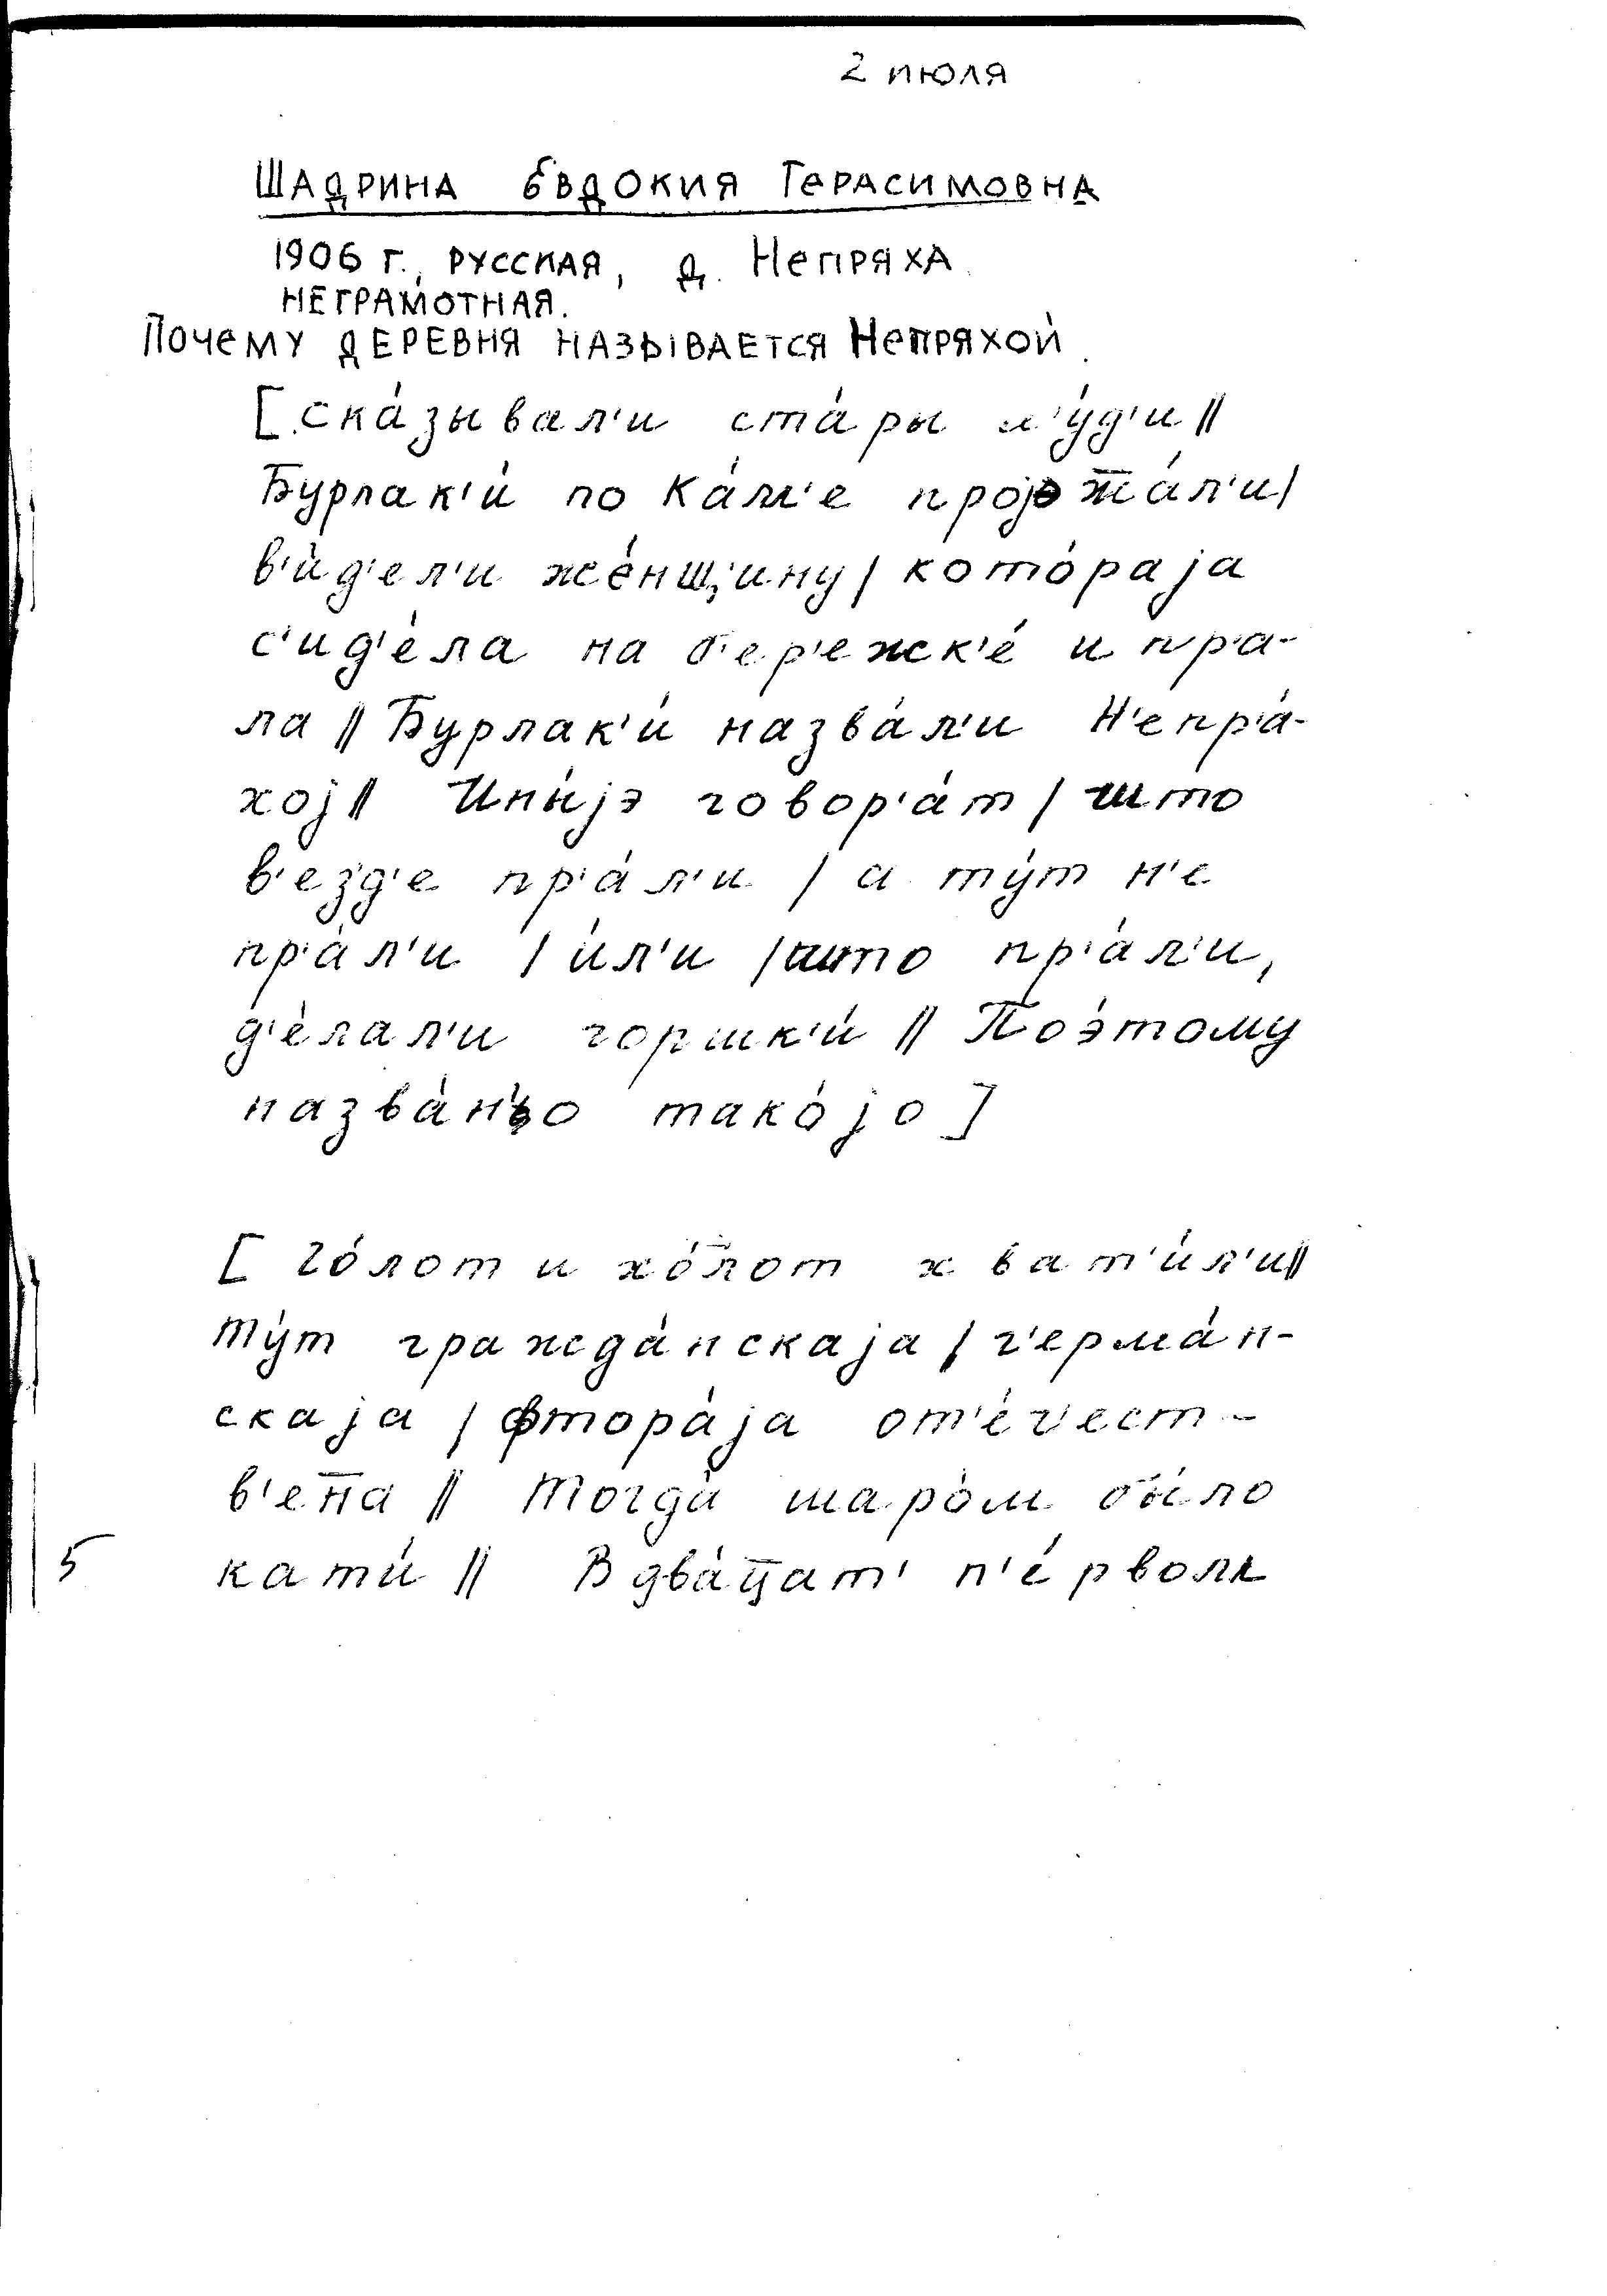 2 июля
Шадрина Евдокия Герасимовна
1906 г., русская, д. Непряха
неграмотная.
Почему деревня называется Непряхой.
[ска́зывал'и ста́ры л'у́д'и ||
Бурлак'и́ по Ка́м'е проjэж̅а́л'и |
в'и́д'ел'и же́нщ'ину | кото́раjа
с'ид'е́ла на б'ер'ежк'е́ и пр'а-
ла || Бурлак'и́ назва́л'и Н'епр'а́-
хоj || Ины́jэ говор'а́т | што
в'ез'д'е пр'а́л'и | а ту́т н'е
пр'а́л'и | и́л'и | што пр'а́л'и,
д'е́лал'и горшк'и́ || Поэ́тому
назва́н'ьо тако́jо]
[Го́лот и хо́лот хват'и́л'и ||
Ту́т гражда́нскаjа | г'ерма́н-
скаjа | фтора́jа от'е́ч'ест-
в'ен̅а || Тогда́ шаро́м бы́ло
кати́ || В два́ц̅ат' п'е́рвом
5